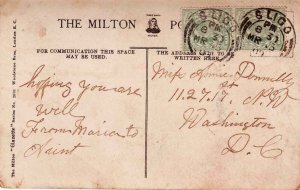 THE MILTON PO
SLIGO
SLIGO
FOR COMMUNICATION THIS SPACE
MAY BE USED.
THE ADDRESS
WRITTEN HERE.
hoping you are
well
From Maria to
Aunt
Miss Annie Donnelly
11.27.19. St. N.W
Washington
D.C
The Milton "Glazette" Series No.
Woodstreet Sons, London E.C.